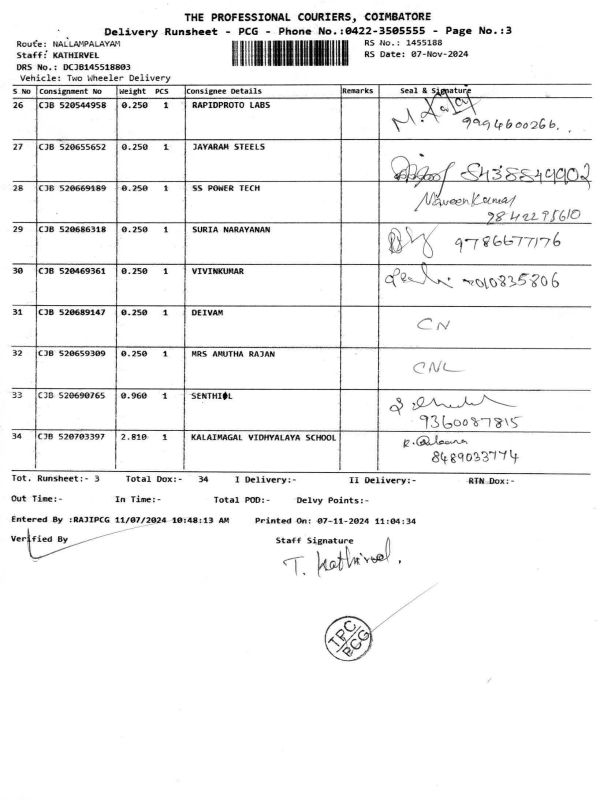 THE PROFESSIONAL COURIERS, COIMBATORE
Delivery Runsheet - PCG - Phone No.:0422-3505555 - Page No.:3
Route: NALLAMPALAYAM RS No.: 1455188
Staff: KATHIRVEL RS Date: 07-Nov-2024
DRS No.: DCJB145518803
Vehicle: Two Wheeler Delivery
S No Consignment No Weight PCS Consignee Details Remarks Seal & Signature
26 CJB 520544958 0.250 1 RAPIDPROTO LABS
9994600266.
27 CJB 520655652 0.250 1 JAYARAM STEELS
28 CJB 520669189 0.250 1 SS POWER TECH
Naveen Kumar
9842295610
29 CJB 520686318 0.250 1 SURIA NARAYANAN
9786677176
30 CJB 520469361 0.250 1 VIVINKUMAR
31 CJB 520689147 0.250 1 DEIVAM
CN
32 CJB 520659309 0.250 1 MRS AMUTHA RAJAN
CNL
33 CJB 520690765 0.960 1 SENTHIL
9360087815
34 CJB 520703397 2.810 1 KALAIMAGAL VIDHYALAYA SCHOOL
8489033774
Tot. Runsheet:- 3 Total Dox:- 34 I Delivery:- II Delivery:- RTN Dox:-
Out Time:- In Time:- Total POD:- Delvy Points:-
Entered By :RAJIPCG 11/07/2024 10:48:13 AM Printed On: 07-11-2024 11:04:34
Verified By Staff Signature
T. Kathirvel.
TPC
PCG